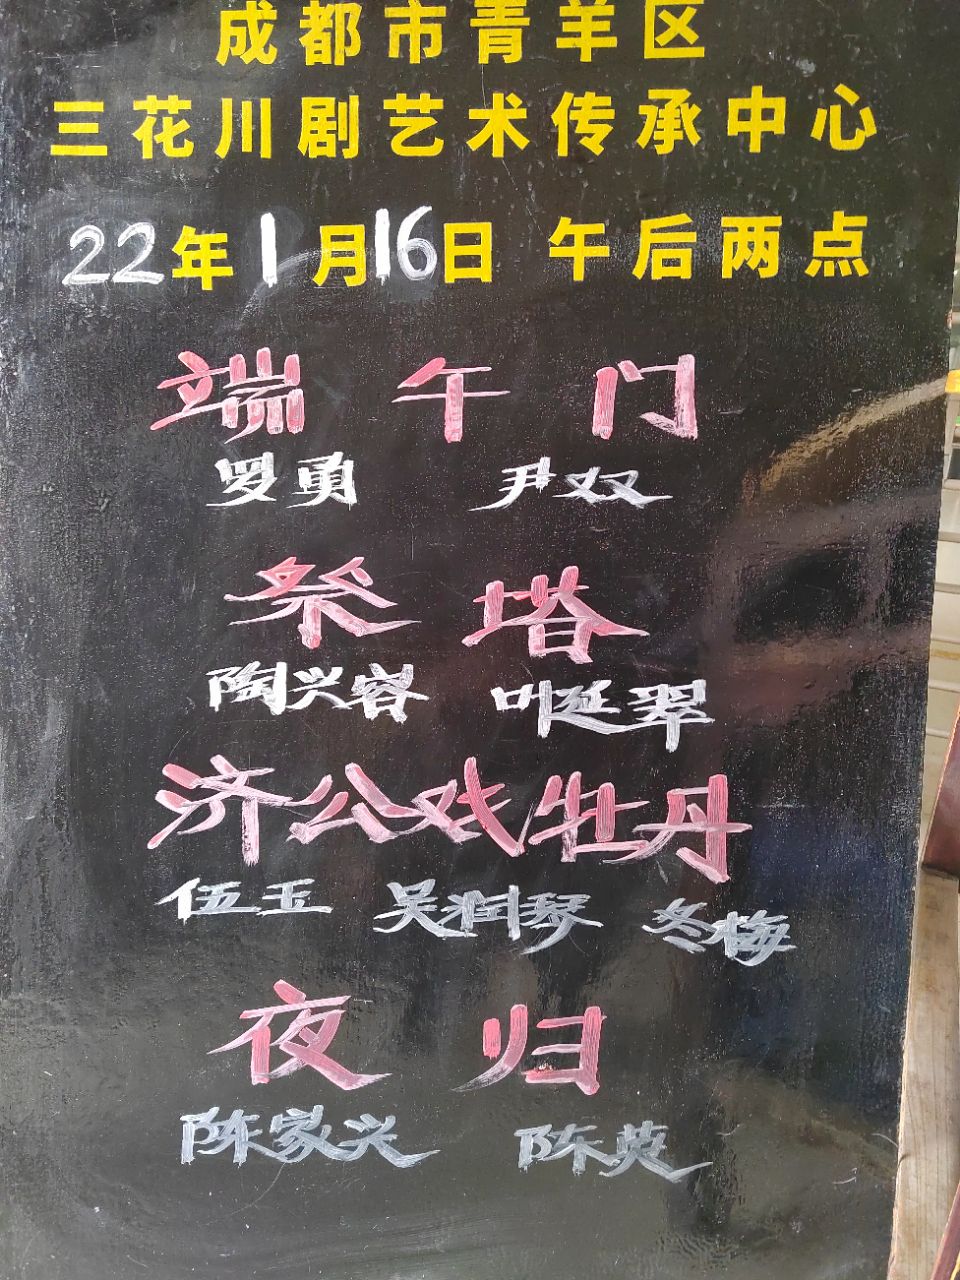 成都市青羊区
三花川剧艺术传承中心
22年1月16日 午后两点
端午门
罗勇 尹双
祭塔
陶兴容 叶延翠
济公戏牡丹
伍玉 吴润琴 冬梅
夜归
陈家兴 陈英